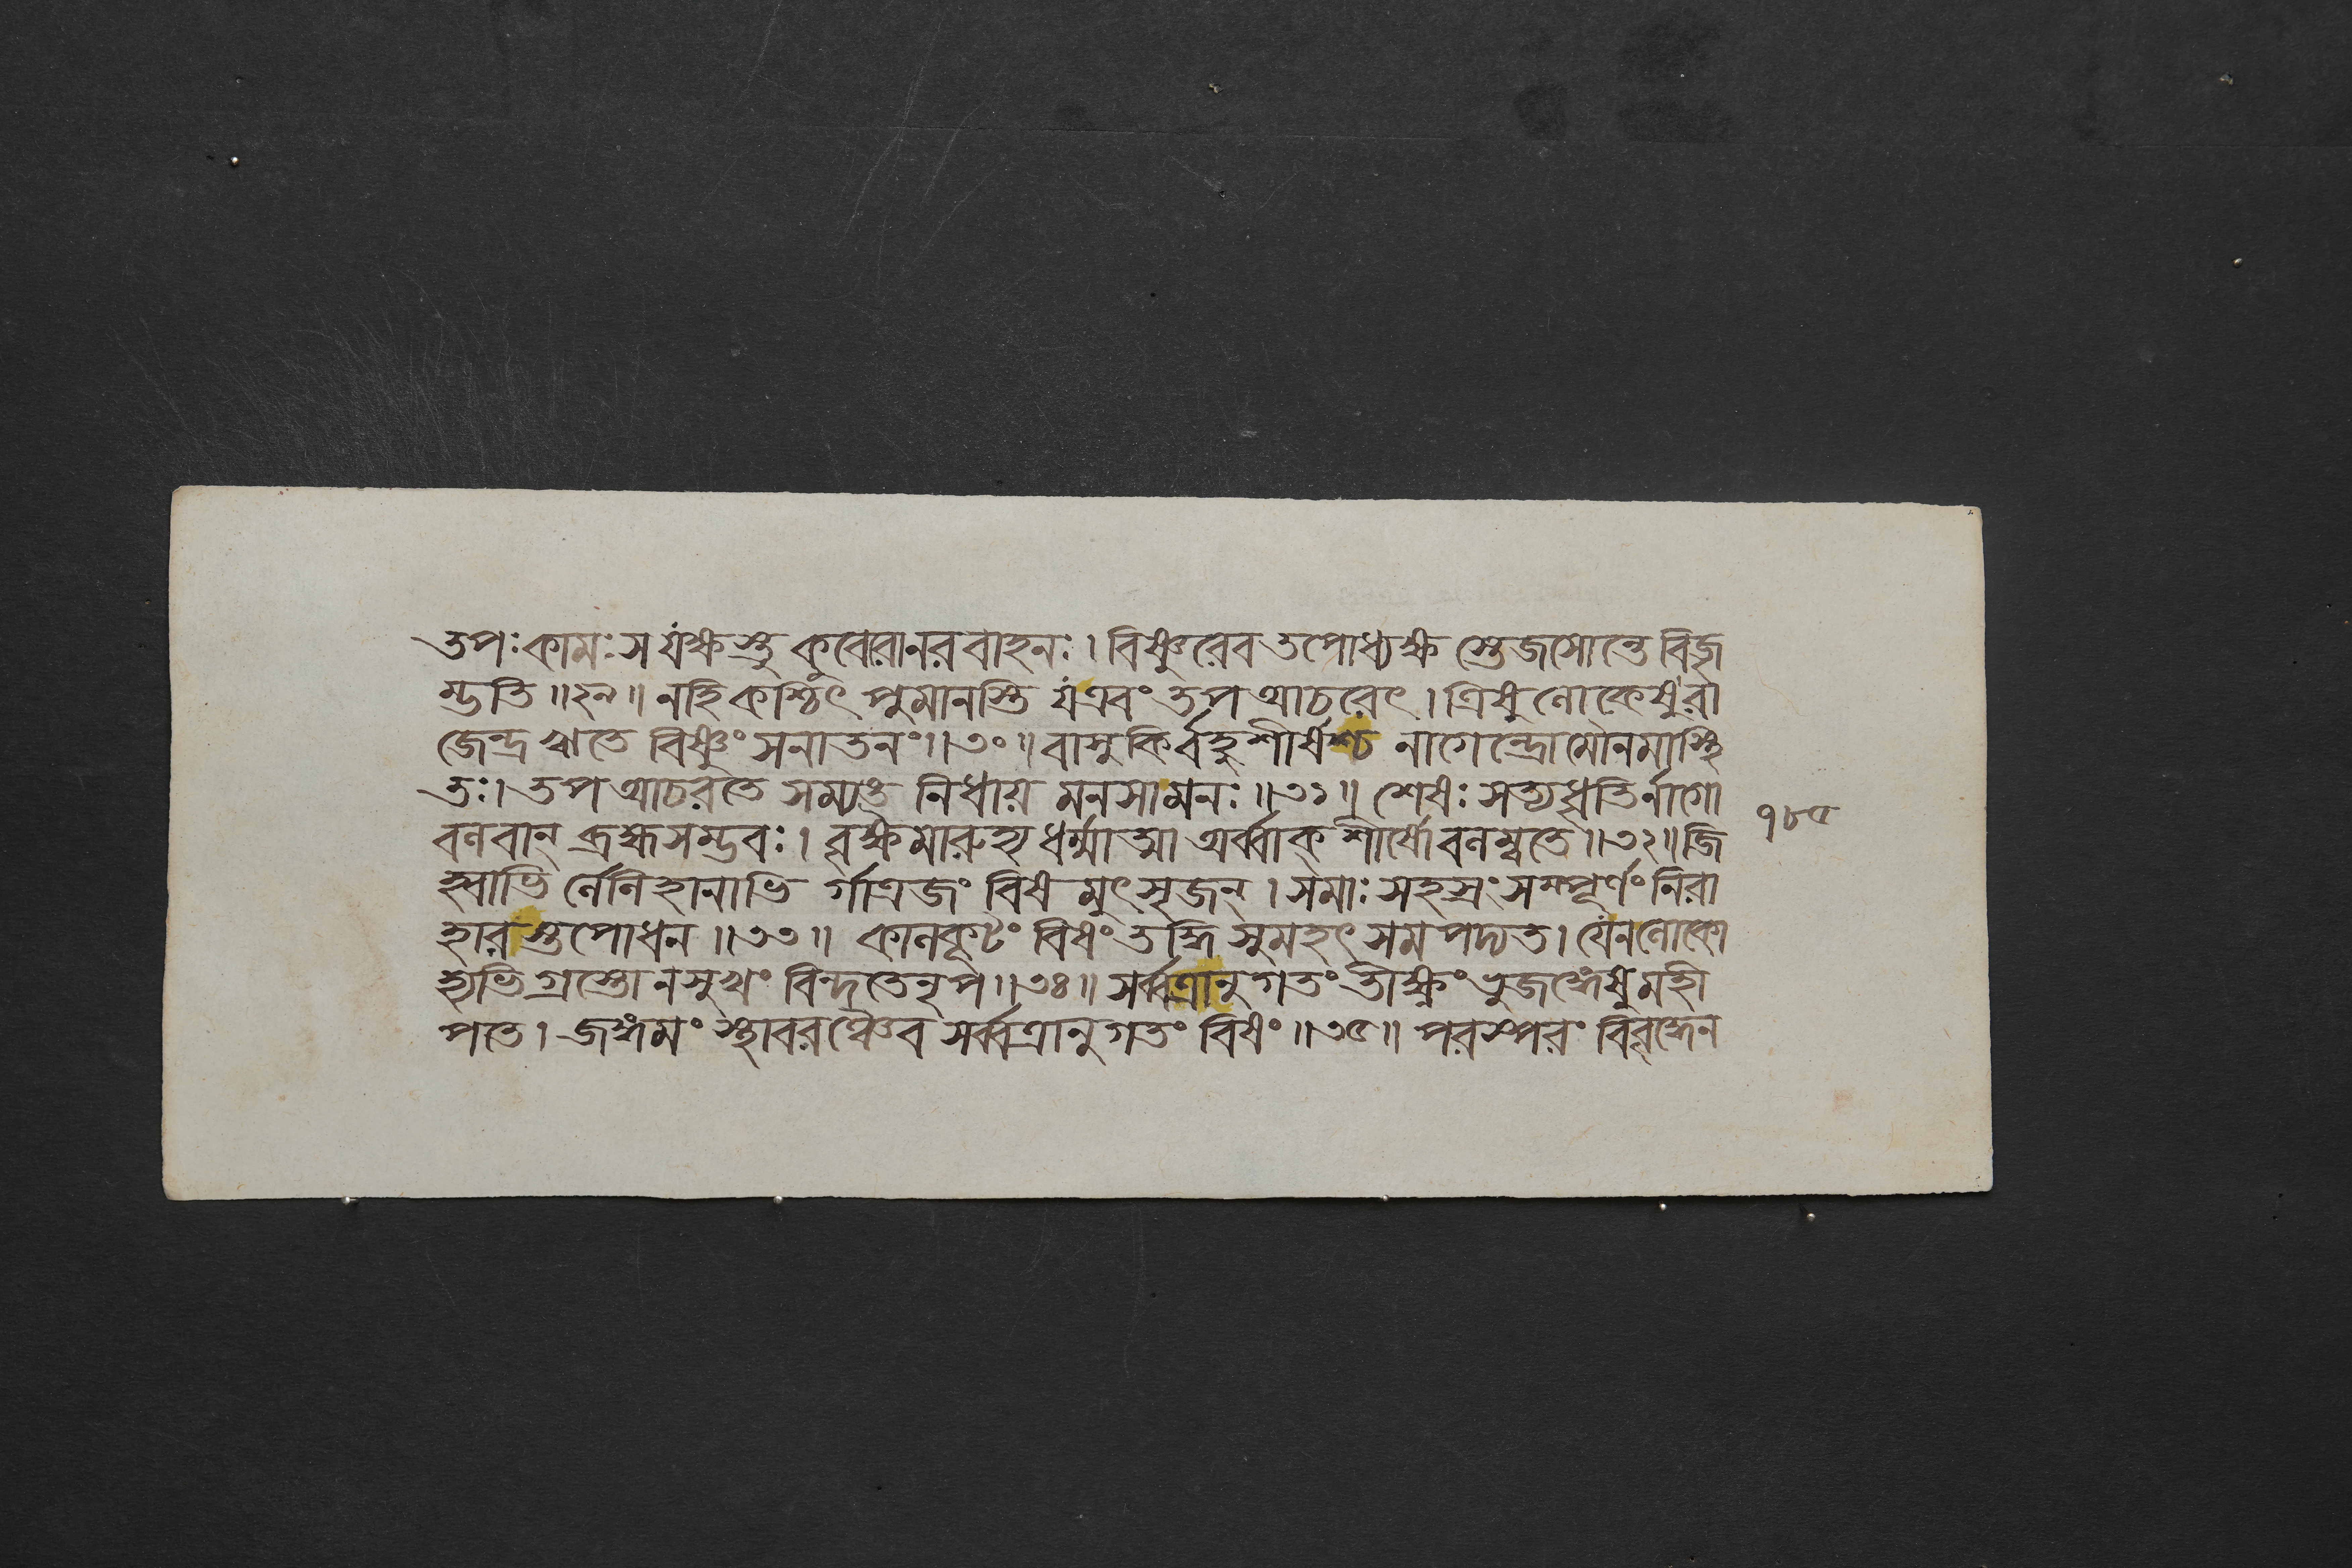 তপঃ কামঃ স যক্ষস্তু কুবেরো নর বাহনঃ। বিষ্ণুরেব তপোধ্যক্ষ স্তেজসোন্তে বিজৃ
ম্ভতি॥২৯॥ নহি কশ্চিৎ পুমানস্তি য এবং তপ আচরেৎ। ত্রিষু লোকেষু রা
জেন্দ্র ঋতে বিষ্ণুং সনাতনং॥৩০॥ বাসুকির্বহু শীর্ষশ্চ নাগেন্দ্রো মৌনমাস্থি
তঃ। তপ আচরতে সম্যক্ত নিধায় মনসা মনঃ॥৩১॥ শেষঃ সত্যধৃতির্নাগো
বলবান্ ব্রহ্মসম্ভবঃ। বৃক্ষমারুহ্য ধর্ম্মাত্মা অর্ব্বাক্ শীর্ষোবলম্বতে॥৩২॥ জি
হ্বাভি র্লেলিহানাভি র্গাত্রজং বিষ মুৎসৃজন্। সমাঃ সহস্রং সম্পূর্ণং নিরা
হারস্তপোধন॥৩৩॥ কালকূটং বিষং তদ্ধি সুমহৎ সমপদ্যত। যেন লোকো
হ্যভিগ্রস্তো ন সুখং বিন্দতে নৃপ॥৩৪॥ সর্ব্বত্রানুগতং তীক্ষ্ণং ভুজঙ্গেষু মহী
পতে। জঙ্গমং স্থাবরঞ্চৈব সর্ব্বত্রানুগতং বিষং॥৩৫॥ পরস্পর বিবৃদ্ধেন
১৮৫